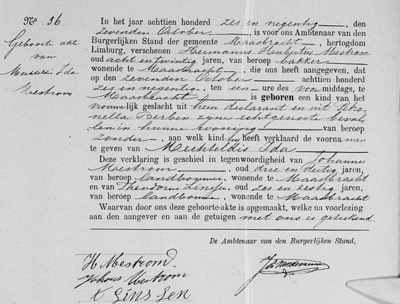 No 26.
Geboorte akte
van
Mechteldis Ida
Mestrom
In het jaar achttien honderd zes en negentig, den
zevenden October, is voor ons Ambtenaar van den
Burgerlijken Stand der gemeente Maasbracht, hertogdom
Limburg, verschenen Hermanus Hubertus Mestrom
oud acht en twintig jaren, van beroep bakker
wonende te Maasbracht, die ons heeft aangegeven, dat
op den zevenden October achttien honderd
zes en negentig, ten een ure des middags, te
Maasbracht is geboren een kind van het
vrouwelijk geslacht uit hem declarant en uit
Berben zijne echtgenoote
in hunne woning van beroep
zonder, aan welk kind hij heeft verklaard de voornamen
te geven van Mechteldis Ida
Deze verklaring is geschied in tegenwoordigheid van Johannes
Mestrom, oud drie en dertig jaren,
van beroep landbouwer, wonende te Maasbracht
en van Theodorus Linssen, oud zes en zestig jaren,
van beroep landbouwer, wonende te Maasbracht
Waarvan door ons deze geboorte-akte is opgemaakt, welke na voorlezing
aan den aangever en aan de getuigen met ons is geteekend.
De Ambtenaar van den Burgerlijken Stand,
H Mestrom
Johans Mestrom
Linssen